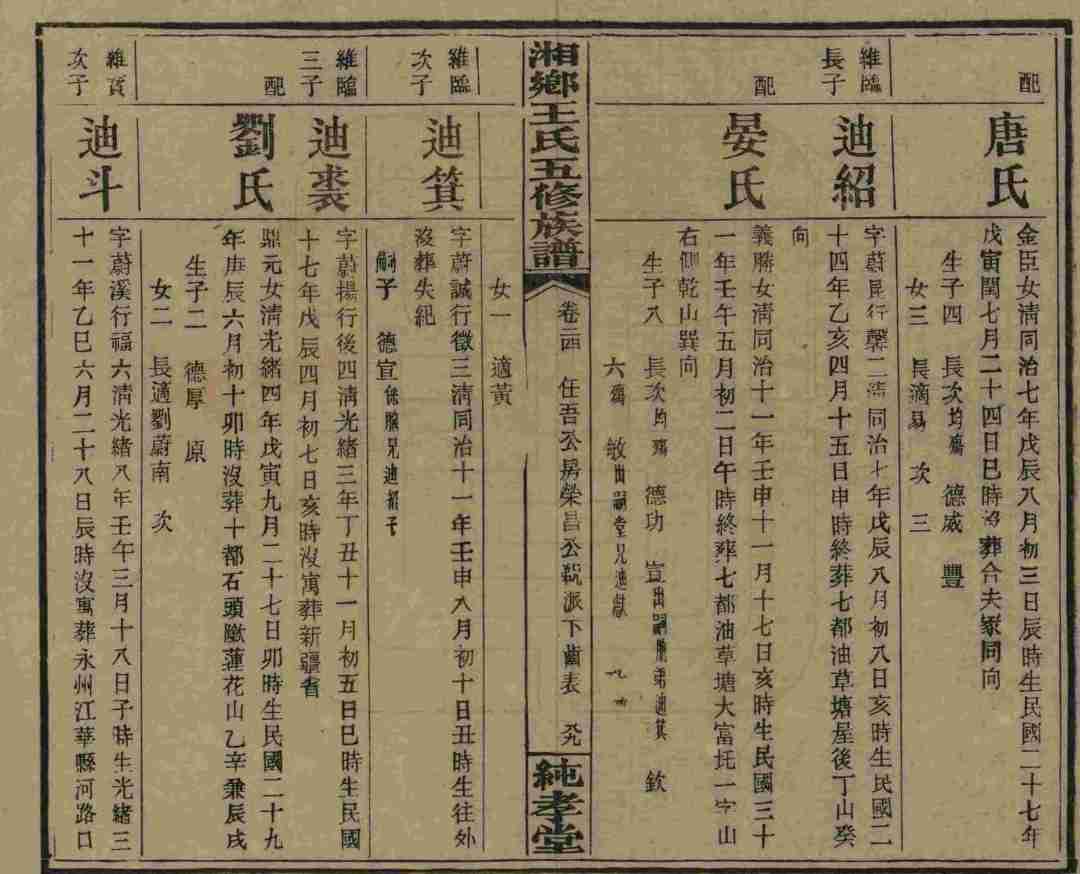 配
唐氏
金臣女清同治七年戊辰八月初三日辰時生民國二十七年
戊寅閏七月二十四日巳時沒葬合夫冢同向
生子四 長次均殤 德威 豐
女三 長適易 次 三
維臨
長子
迪紹
字蔚昆行馨二清同治七年戊辰八月初八日亥時生民國二
十四年乙亥四月十五日申時終葬七都油草塘屋後丁山癸
向
配
晏氏
義勝女清同治十一年壬申十一月十七日亥時生民國三十
一年壬午五月初二日午時終葬七都油草塘大富托一字山
右側乾山巽向
生子八 長次均殤 德功 宣出嗣胞弟迪箕 欽
六殤 敏出嗣堂兄迪猷
女一 適黃
湘鄉王氏五修族譜
卷二四 任吾公房榮昌公 派下齒表
純孝堂
維臨
次子
迪箕
字蔚誠行徵三清同治十一年壬申八月初十日丑時生往外
沒葬失紀
嗣子 德宣係胞兄迪紹子
維臨
三子
迪裘
字蔚揚行後四清光緒三年丁丑十一月初五日巳時生民國
十七年戊辰四月初七日亥時沒寓葬新疆省
配
劉氏
鼎元女清光緒四年戊寅九月二十七日卯時生民國二十九
年庚辰六月初十卯時沒葬十都石頭 蓮花山乙辛兼辰戌
生子二 德厚 原
女二 長適劉蔚南 次
維質
次子
迪斗
字蔚溪行福六清光緒八年壬午三月十八日子時生光緒三
十一年乙巳六月二十八日辰時沒寓葬永州江華縣河路口